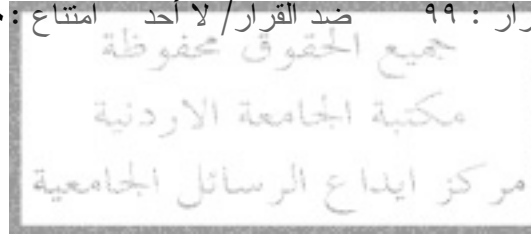 رار : ٩٩ ضد القرار/ لا أحد امتناع :
جميع الحقوق محفوظة
مكتبة الجامعة الاردنية
مركز ايداع الرسائل الجامعية